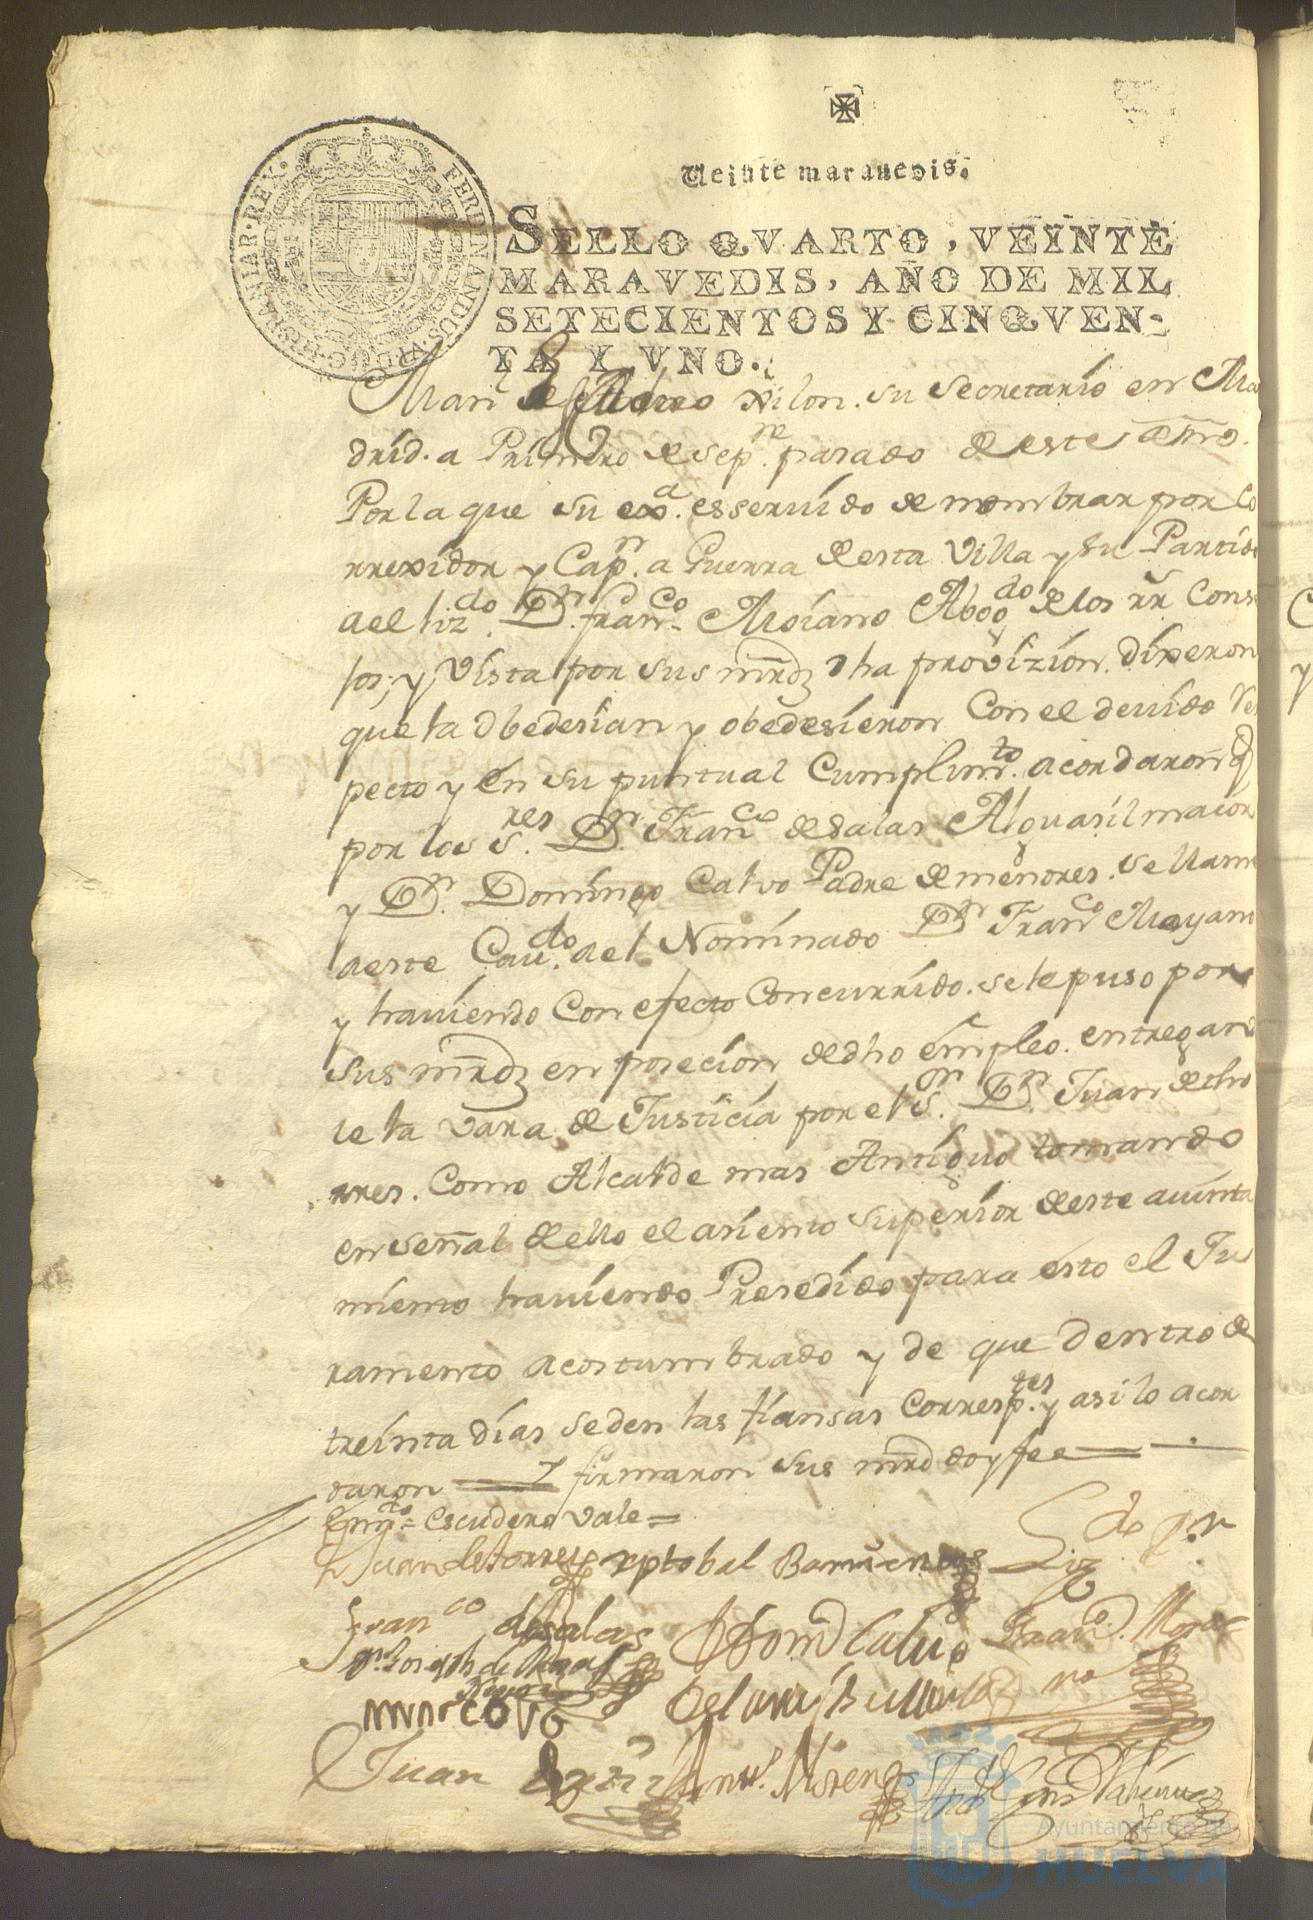 Veinte maravedis.
SELLO QVARTO, VEINTE
MARAVEDIS, AÑO DE MIL
SETECIENTOS Y CINQVEN-
TA Y VNO.
FERDINANDUS HISPANIAR·REX·
su secretario en Ma
drid. a Primero de sep.re pasado de este año.
Por la que su exa. es seruido de nombrar por Co
rrexidor y Capn. a Guerra de esta Villa y su Partido
a el lizdo. Dn. Franco. Moiano Abogdo de los rr Conse
jos; y Vista por sus mrdz dha provizion. dixeron
que la Obedesian y obedesieron Con el deuido Res
pecto y en su puntual Cumplimto. acordaron q
por los Sres. Dn. Franco de Salas Alguasil maior
y Dn. Domingo Calvo Padre de menores. se llame
a este Caudo. a el Nominado Dn Franco Moyano
y hauiendo Con efecto Concurrido. se le puso por
sus mrdz en posecion de dho empleo. entregando
le la vara de Justicia por el Sr. Dn. Juan de tho
rres. Como Alcalde mas Antiguo tomando
en señal de ello el asiento superior de este aiunta
miento hauiendo Presedido para esto el Ju
ramento acostumbrado y de que dentro de
treinta dias se den las fiansas Corresptes. y asi lo acor
daron = Y firmaron sus mrd doy fee
Enmdo = escudero vale =
Juan de torres xptobal Barrientos Lizdo Dn
Franco de Salas Domo Calvo Franco. Moya
no
Dn. Joseph de
Juan
Ayuntamiento de
HUELVA